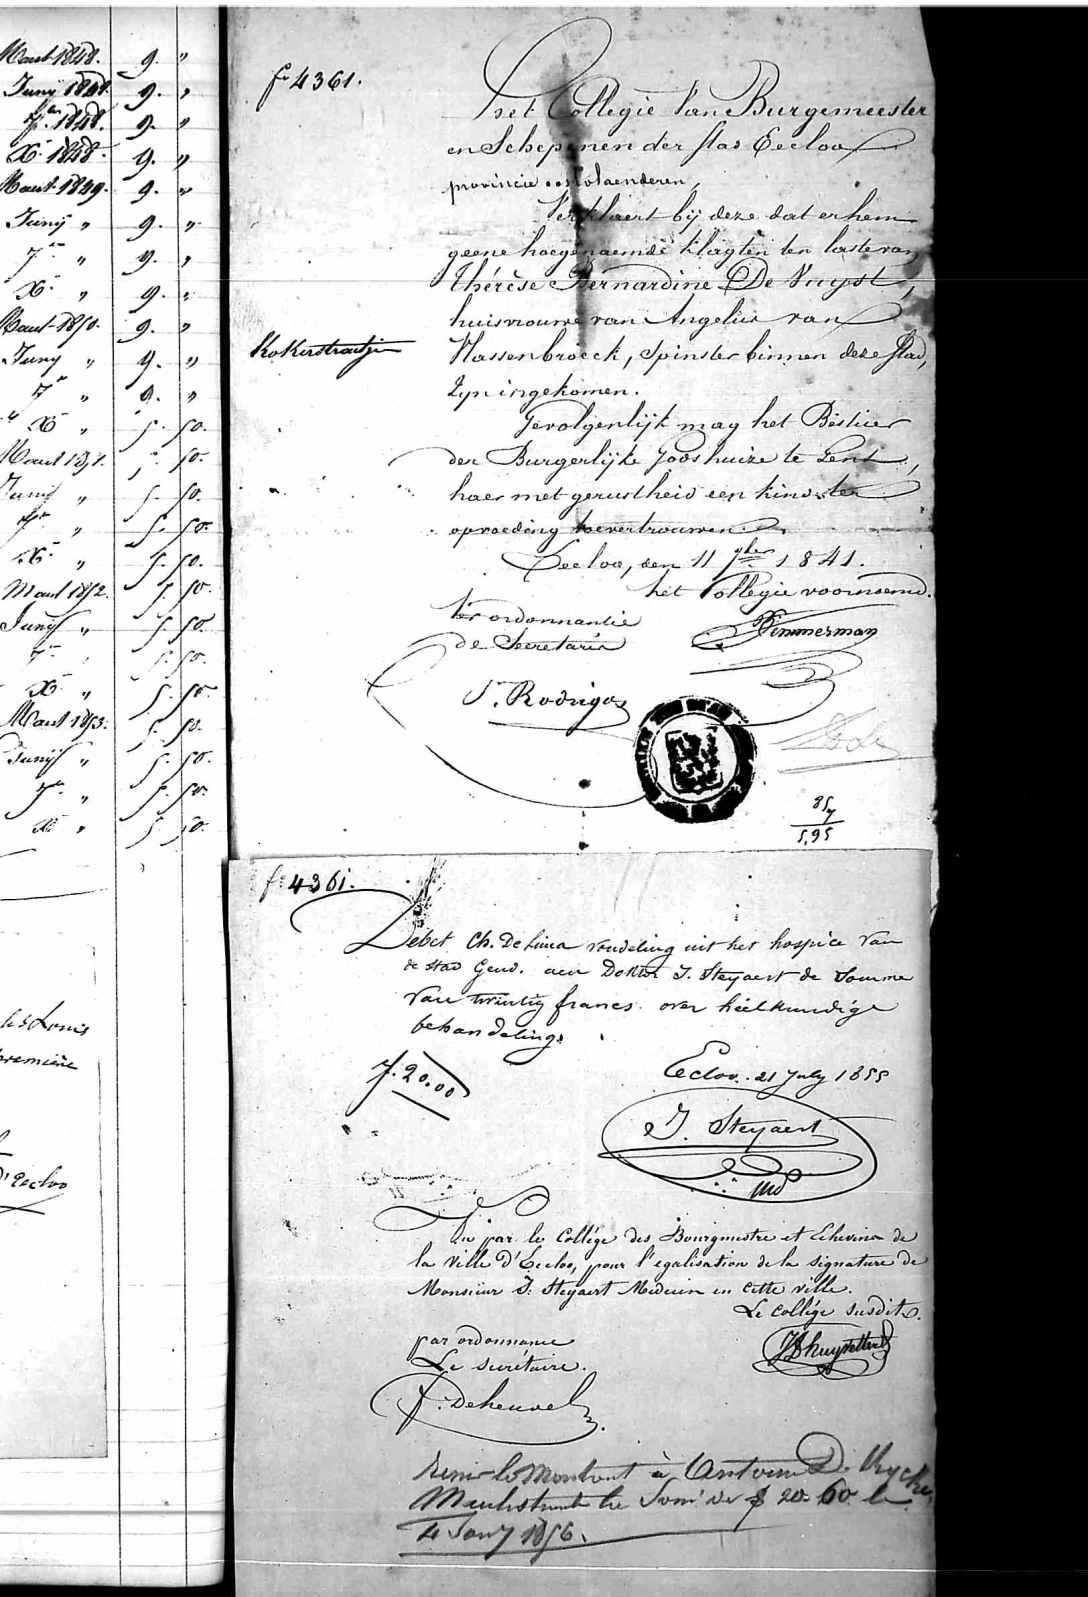 Maart 1848. 9. "
Juny 1848. 9. "
7bre 1848. 9. "
Xbre 1848. 9. "
Maart 1849. 9. "
Juny " 9. "
7bre " 9. "
Xbre " 9. "
Maart 1850. 9. "
Juny " 9. "
7bre " 9. "
Xbre " 5. 50.
Maart 1851. 5. 50.
Juny " 5. 50.
7bre " 5. 50.
Xbre " 5. 50.
Maart 1852. 5. 50.
Juny " 5. 50.
7bre " 5. 50.
Xbre " 5. 50.
Maart 1853. 5. 50.
Juny " 5. 50.
7bre " 5. 50.
Xbre " 5. 50.
Louis
première
d'Eecloo
fo 4361.
het Collegie Van Burgemeester
en Schepenen der stad Eecloo
provincie oostvlaenderen,
Verklaert bij deze dat er hem
geene hoegenaemde klagten ten laste van
Thérèse Bernardine De Vuyst,
huisvrouwe van Angelus van
Kokerstraetje
Hassenbroeck, Spinster binnen deze stad,
zyn ingekomen.
Gevolgenlijk mag het Bestier
der Burgerlijke Godshuize te Gent,
haer met gerustheid een kind ter
opvoeding toevertrouwen.
Eecloo, den 11 9ber 1841.
het Collegie voornoemd.
ter ordonnantie
de Secretaris
Temmerman
S. Rodrigos
85
7
5,95
fo 4361.
Debet Ch. De Lima voudeling uit het hospice Van
de stad Gend. aen Doktor J. Steyaert de Somme
van twintig francs over heelkundige
behandeling.
f. 20.00
Eecloo. 21 July 1855
J. Steyaert
md
Vu par le Collége des Bourgmestre et Echevins de
la Ville d'Eecloo, pour l'egalisation de la signature de
Monsieur J. Steyaert Medecin en cette ville.
Le collége susdit.
par ordonnance
Le secrétaire.
F. Deheuvel
Remis le Montant à Antoine D.
le Som de f 20.60 le
4 Janv 1856.